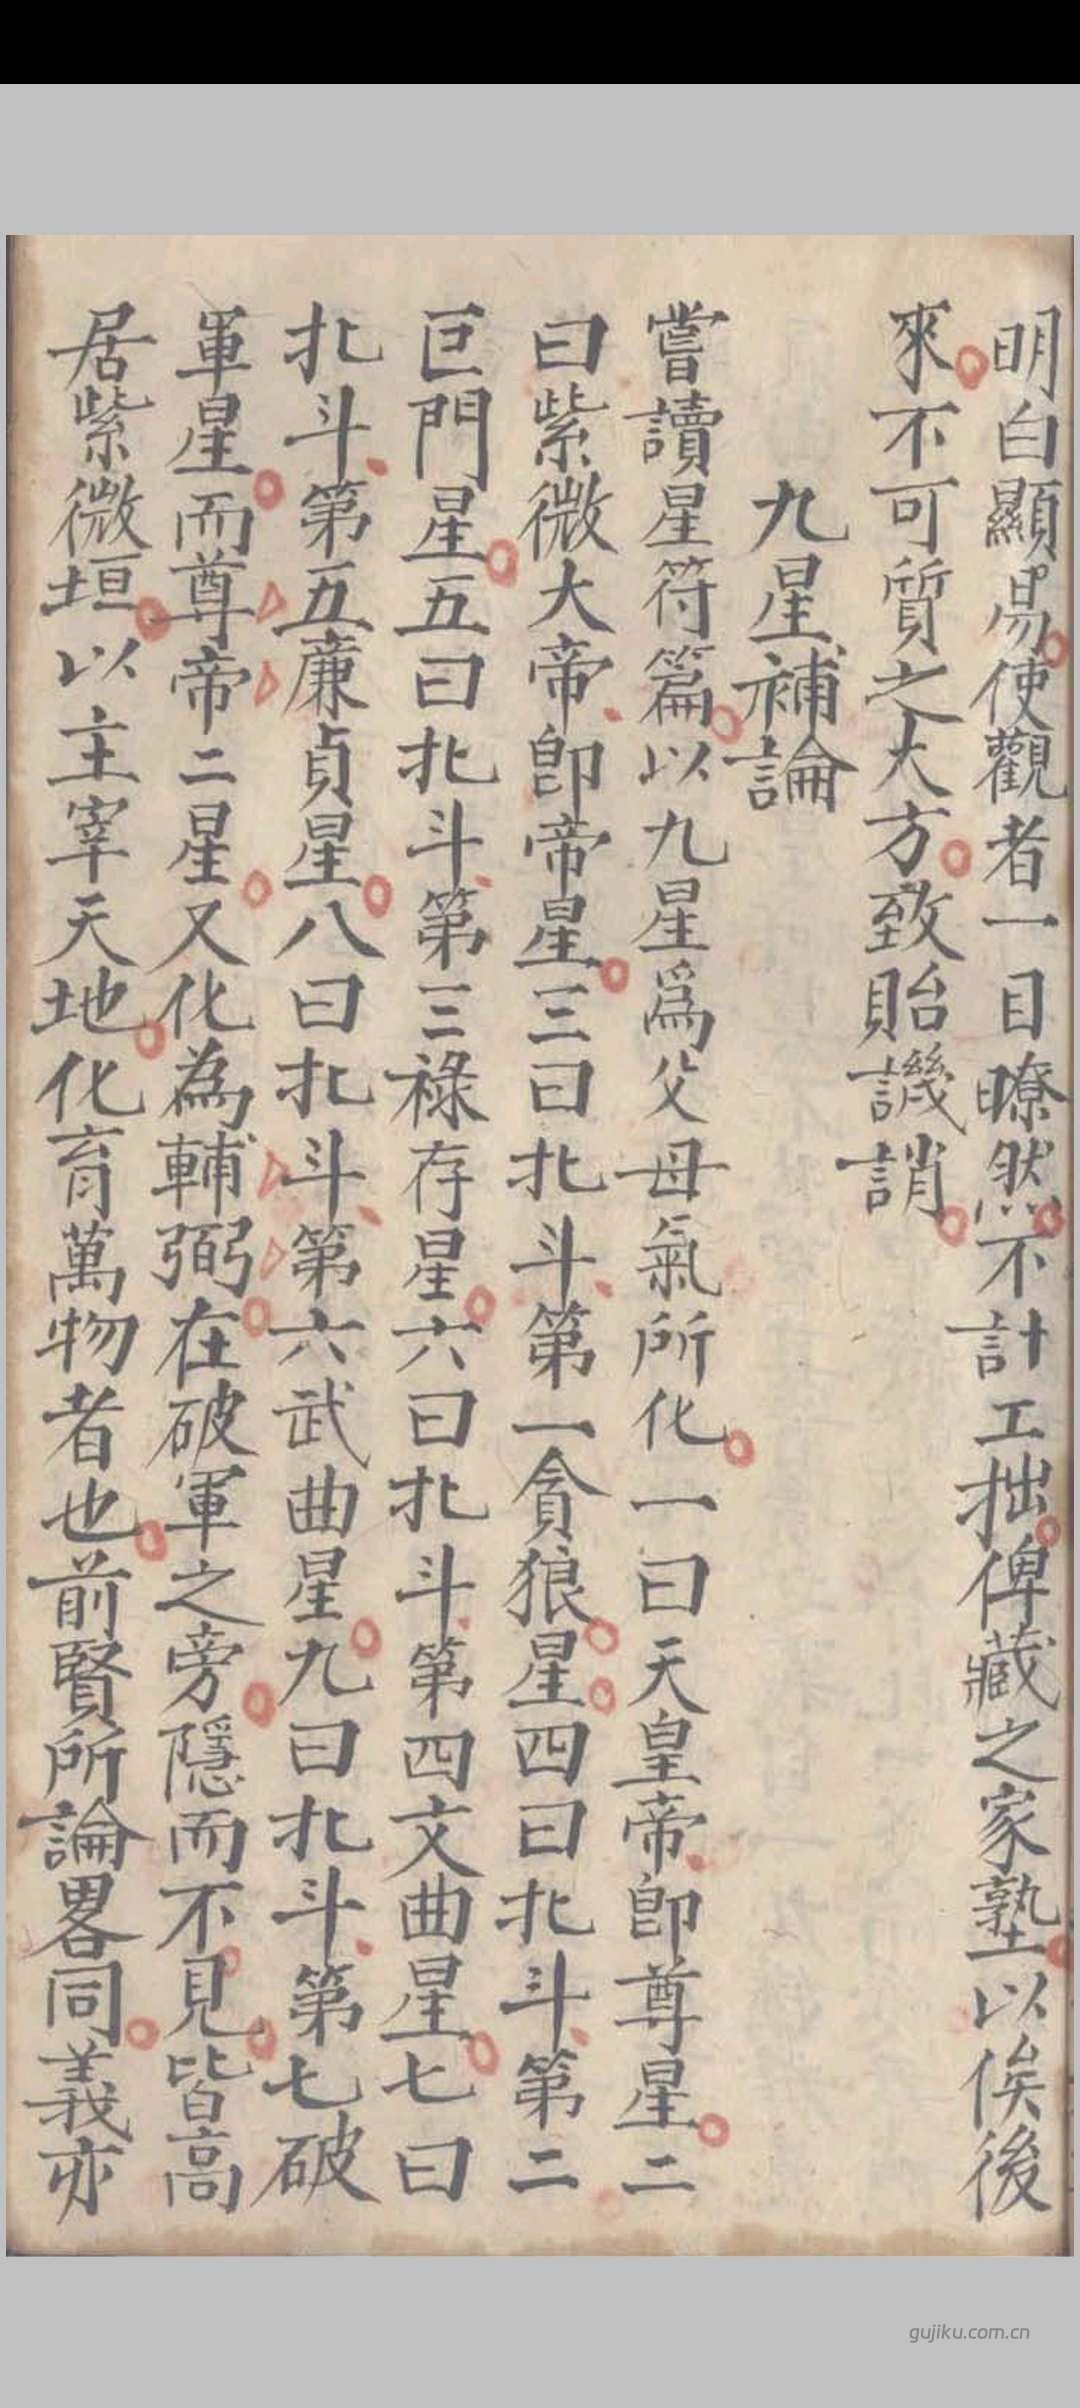 明白顯昜使觀者一目瞭然不計工拙俾藏之家塾以俟後
來不可質之大方致貽譏誚
九星補論
嘗讀星符篇以九星爲父母氣所化一曰天皇帝卽尊星二
曰紫微大帝卽帝星三曰北斗第一貪狼星四曰北斗第二
巨門星五曰北斗第三祿存星六曰北斗第四文曲星七曰
北斗第五廉貞星八曰北斗第六武曲星九曰北斗第七破
軍星而尊帝二星又化為輔弼在破軍之旁隱而不見皆高
居紫微垣以主宰天地化育萬物者也前賢所論畧同義亦
gujiku.com.cn